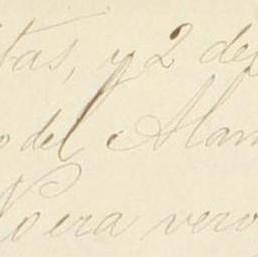 tas, y 2 de
o del Alam
era vero